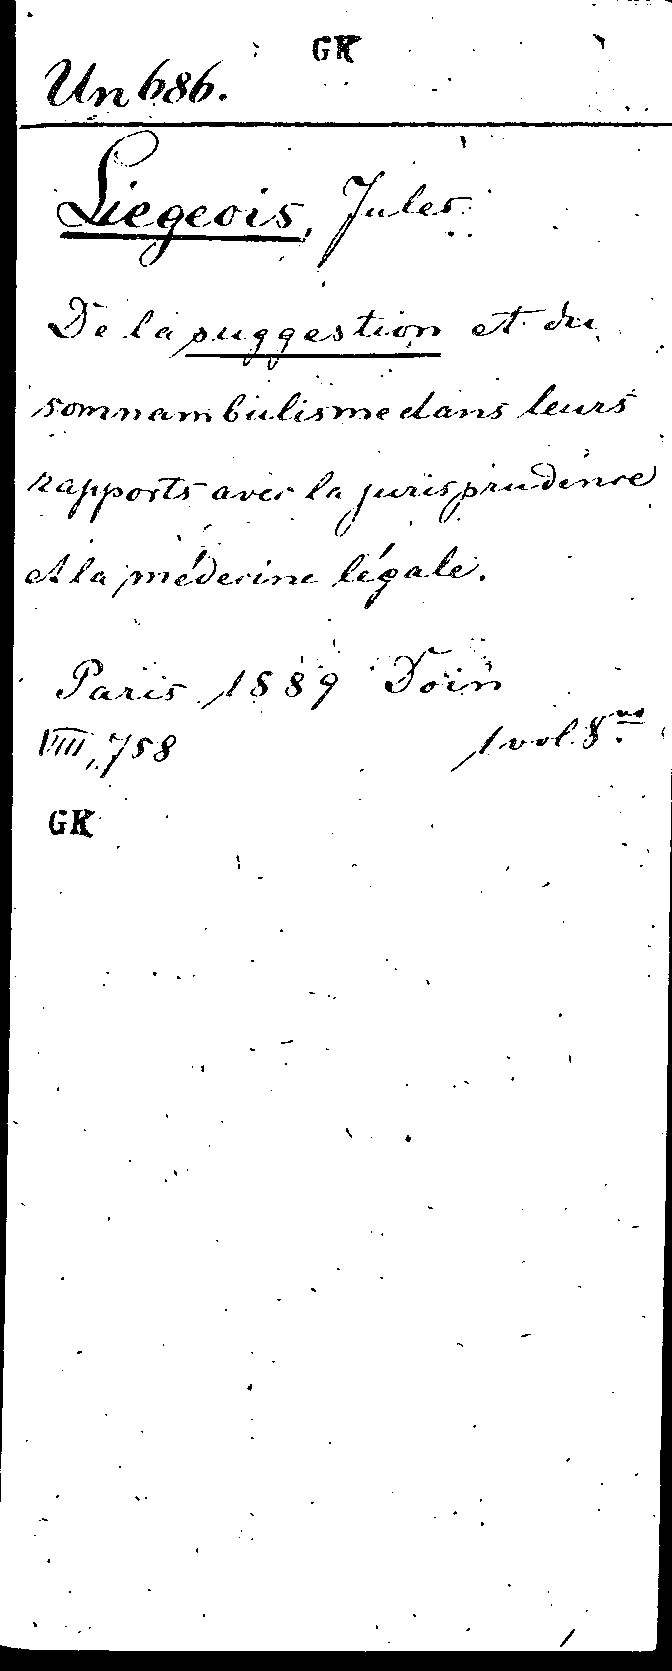 GK
Un 686.
Liegeois, Jules
De la suggestion et du
somnambulisme dans leurs
rapports avec la jurisprudence
et la médecine légale.
Paris 1889 Doin
VIII, 758 1 vol. 8.vo
GK